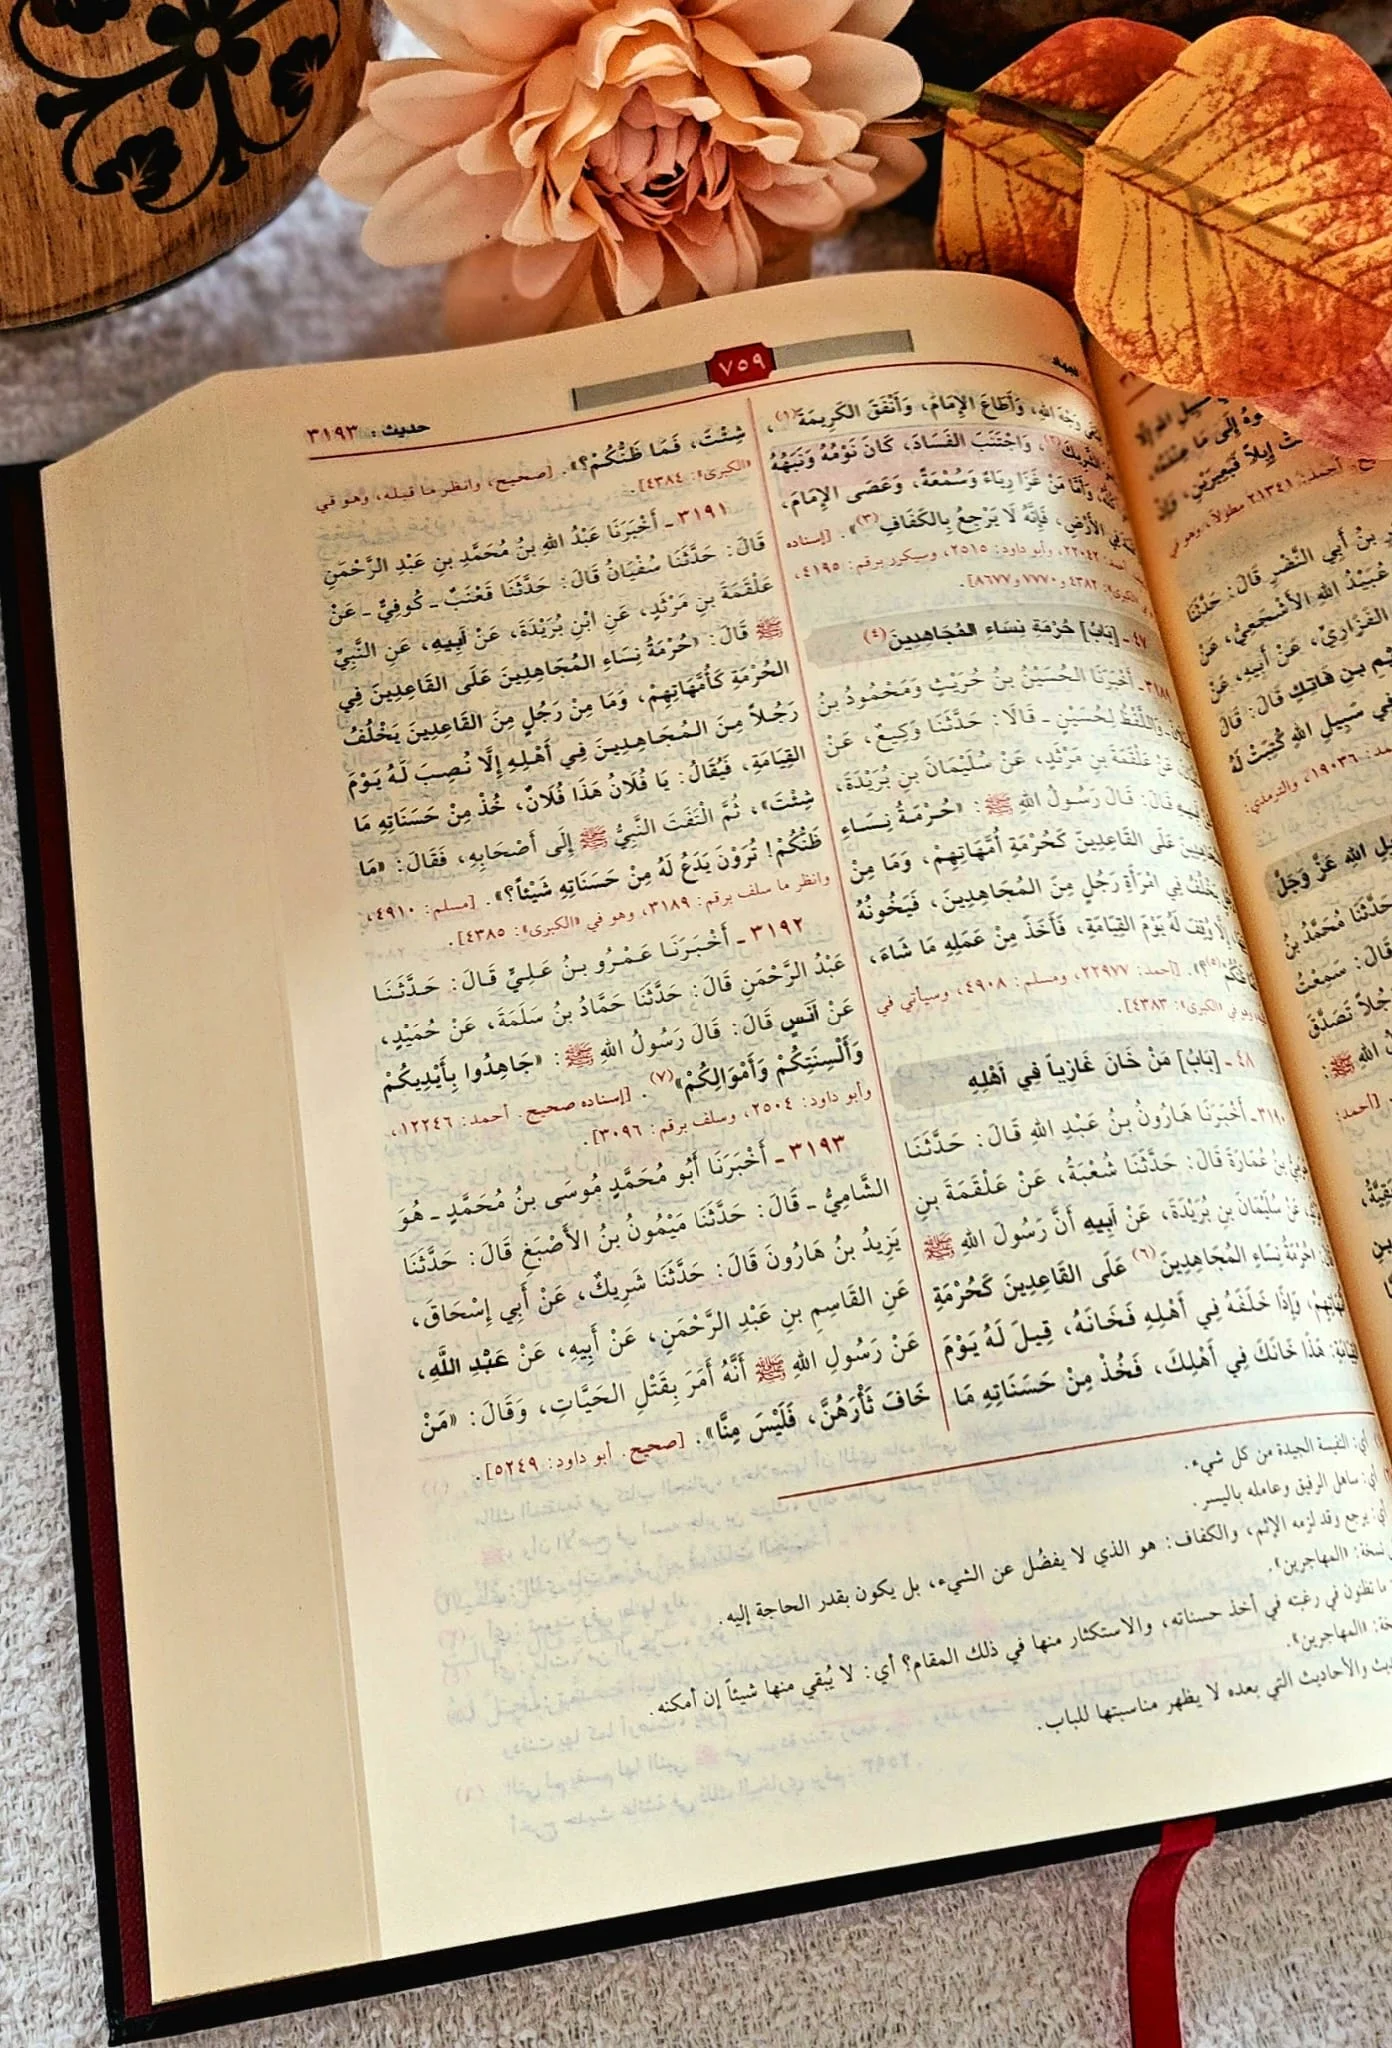 ٧٥٩
حديث: ٣١٩٣
وَجْهَ اللهِ، وَأَطَاعَ الإِمَامَ، وَأَنْفَقَ الكَرِيمَةَ(١)،
الشَّرِيكَ(٢)، وَاجْتَنَبَ الفَسَادَ، كَانَ نَوْمُهُ وَنَبَهُهُ
كُلُّهُ، وَأَمَّا مَنْ غَزَا رِيَاءً وَسُمْعَةً، وَعَصَى الإِمَامَ،
فِي الأَرْضِ، فَإِنَّهُ لَا يَرْجِعُ بِالكَفَافِ(٣)». [إسناده
أحمد: ٢٢٠٤٢، وأبو داود: ٢٥١٥، وسيكرر برقم: ٤١٩٥،
«الكبرى»: ٤٣٨٢ و٧٧٧٠ و٨٦٧٧].
٤٧ - [بَابُ] حُرْمَةِ نِسَاءِ المُجَاهِدِينَ(٤)
٣١٨٩ - أَخْبَرَنَا الحُسَيْنُ بنُ حُرَيْثٍ وَمَحْمُودُ بنُ
وَاللَّفْظُ لِحُسَيْنٍ - قَالَا: حَدَّثَنَا وَكِيعٌ، عَنْ
عَنْ عَلْقَمَةَ بنِ مَرْثَدٍ، عَنْ سُلَيْمَانَ بنِ بُرَيْدَةَ،
قَالَ: قَالَ رَسُولُ اللهِ ﷺ: «حُرْمَةُ نِسَاءِ
عَلَى القَاعِدِينَ كَحُرْمَةِ أُمَّهَاتِهِمْ، وَمَا مِنْ
يَخْلُفُ فِي امْرَأَةِ رَجُلٍ مِنَ المُجَاهِدِينَ، فَيَخُونُهُ
إِلَّا وُقِفَ لَهُ يَوْمَ القِيَامَةِ، فَأَخَذَ مِنْ عَمَلِهِ مَا شَاءَ،
(٥)؟». [أحمد: ٢٢٩٧٧، ومسلم: ٤٩٠٨، وسيأتي في
وهو في «الكبرى»: ٤٣٨٣].
٤٨ - [بَابُ] مَنْ خَانَ غَازِياً فِي أَهْلِهِ
٣١٩٠ - أَخْبَرَنَا هَارُونُ بنُ عَبْدِ اللهِ قَالَ: حَدَّثَنَا
بنُ عُمَارَةَ قَالَ: حَدَّثَنَا شُعْبَةُ، عَنْ عَلْقَمَةَ بنِ
عَنْ سُلَيْمَانَ بنِ بُرَيْدَةَ، عَنْ أَبِيهِ أَنَّ رَسُولَ اللهِ ﷺ
حُرْمَةُ نِسَاءِ المُجَاهِدِينَ(٦) عَلَى القَاعِدِينَ كَحُرْمَةِ
وَإِذَا خَلَفَهُ فِي أَهْلِهِ فَخَانَهُ، قِيلَ لَهُ يَوْمَ
هَذَا خَانَكَ فِي أَهْلِكَ، فَخُذْ مِنْ حَسَنَاتِهِ مَا
شِئْتَ، فَمَا ظَنُّكُمْ؟». [صحيح، وانظر ما قبله، وهو في
«الكبرى»: ٤٣٨٤].
٣١٩١ - أَخْبَرَنَا عَبْدُ اللهِ بنُ مُحَمَّدِ بنِ عَبْدِ الرَّحْمَنِ
قَالَ: حَدَّثَنَا سُفْيَانُ قَالَ: حَدَّثَنَا قَعْنَبٌ - كُوفِيٌّ - عَنْ
عَلْقَمَةَ بنِ مَرْثَدٍ، عَنِ ابْنِ بُرَيْدَةَ، عَنْ أَبِيهِ، عَنِ النَّبِيِّ
ﷺ قَالَ: «حُرْمَةُ نِسَاءِ المُجَاهِدِينَ عَلَى القَاعِدِينَ فِي
الحُرْمَةِ كَأُمَّهَاتِهِمْ، وَمَا مِنْ رَجُلٍ مِنَ القَاعِدِينَ يَخْلُفُ
رَجُلاً مِنَ المُجَاهِدِينَ فِي أَهْلِهِ إِلَّا نُصِبَ لَهُ يَوْمَ
القِيَامَةِ، فَيُقَالُ: يَا فُلَانُ هَذَا فُلَانٌ، خُذْ مِنْ حَسَنَاتِهِ مَا
شِئْتَ»، ثُمَّ الْتَفَتَ النَّبِيُّ ﷺ إِلَى أَصْحَابِهِ، فَقَالَ: «مَا
ظَنُّكُمْ! تُرَوْنَ يَدَعُ لَهُ مِنْ حَسَنَاتِهِ شَيْئاً؟». [مسلم: ٤٩١٠،
وانظر ما سلف برقم: ٣١٨٩، وهو في «الكبرى»: ٤٣٨٥].
٣١٩٢ - أَخْبَرَنَا عَمْرُو بنُ عَلِيٍّ قَالَ: حَدَّثَنَا
عَبْدُ الرَّحْمَنِ قَالَ: حَدَّثَنَا حَمَّادُ بنُ سَلَمَةَ، عَنْ حُمَيْدٍ،
عَنْ أَنَسٍ قَالَ: قَالَ رَسُولُ اللهِ ﷺ: «جَاهِدُوا بِأَيْدِيكُمْ
وَأَلْسِنَتِكُمْ وَأَمْوَالِكُمْ»(٧). [إسناده صحيح. أحمد: ١٢٢٤٦،
وأبو داود: ٢٥٠٤، وسلف برقم: ٣٠٩٦].
٣١٩٣ - أَخْبَرَنَا أَبُو مُحَمَّدٍ مُوسَى بنُ مُحَمَّدٍ - هُوَ
الشَّامِيُّ - قَالَ: حَدَّثَنَا مَيْمُونُ بنُ الأَصْبَغِ قَالَ: حَدَّثَنَا
يَزِيدُ بنُ هَارُونَ قَالَ: حَدَّثَنَا شَرِيكٌ، عَنْ أَبِي إِسْحَاقَ،
عَنِ القَاسِمِ بنِ عَبْدِ الرَّحْمَنِ، عَنْ أَبِيهِ، عَنْ عَبْدِ اللَّهِ،
عَنْ رَسُولِ اللهِ ﷺ أَنَّهُ أَمَرَ بِقَتْلِ الحَيَّاتِ، وَقَالَ: «مَنْ
خَافَ ثَأْرَهُنَّ، فَلَيْسَ مِنَّا». [صحيح. أبو داود: ٥٢٤٩].
أي: النفيسة الجيدة من كل شيء.
أي: ساهل الرفيق وعامله باليسر.
أي: يرجع وقد لزمه الإثم، والكفاف: هو الذي لا يفضُل عن الشيء، بل يكون بقدر الحاجة إليه.
نسخة: «المهاجرين».
ما تظنون في رغبته في أخذ حسناته، والاستكثار منها في ذلك المقام؟ أي: لا يُبقي منها شيئاً إن أمكنه.
«المهاجرين».
والأحاديث التي بعده لا يظهر مناسبتها للباب.
سَبِيلِ اللهِ إِلَّا
إِلَى مَا عِنْدَهُ».
إِبِلاً فَبَعِيرَيْنِ، وَإِنْ
أحمد: ٢١٣٤١ مطولاً، وهو
بنُ أَبِي النَّضْرِ قَالَ: حَدَّثَنَا
عُبَيْدُ اللهِ الأَشْجَعِيُّ، عَنْ
الفَزَارِيِّ، عَنْ أَبِيهِ، عَنْ
بنِ فَاتِكٍ قَالَ: قَالَ
فِي سَبِيلِ اللهِ كُتِبَتْ لَهُ
١٩٠٣٦، والترمذي:
اللهِ عَزَّ وَجَلَّ
حَدَّثَنَا مُحَمَّدُ بنُ
قَالَ: سَمِعْتُ
تَصَدَّقَ
اللهِ ﷺ:
[أحمد: